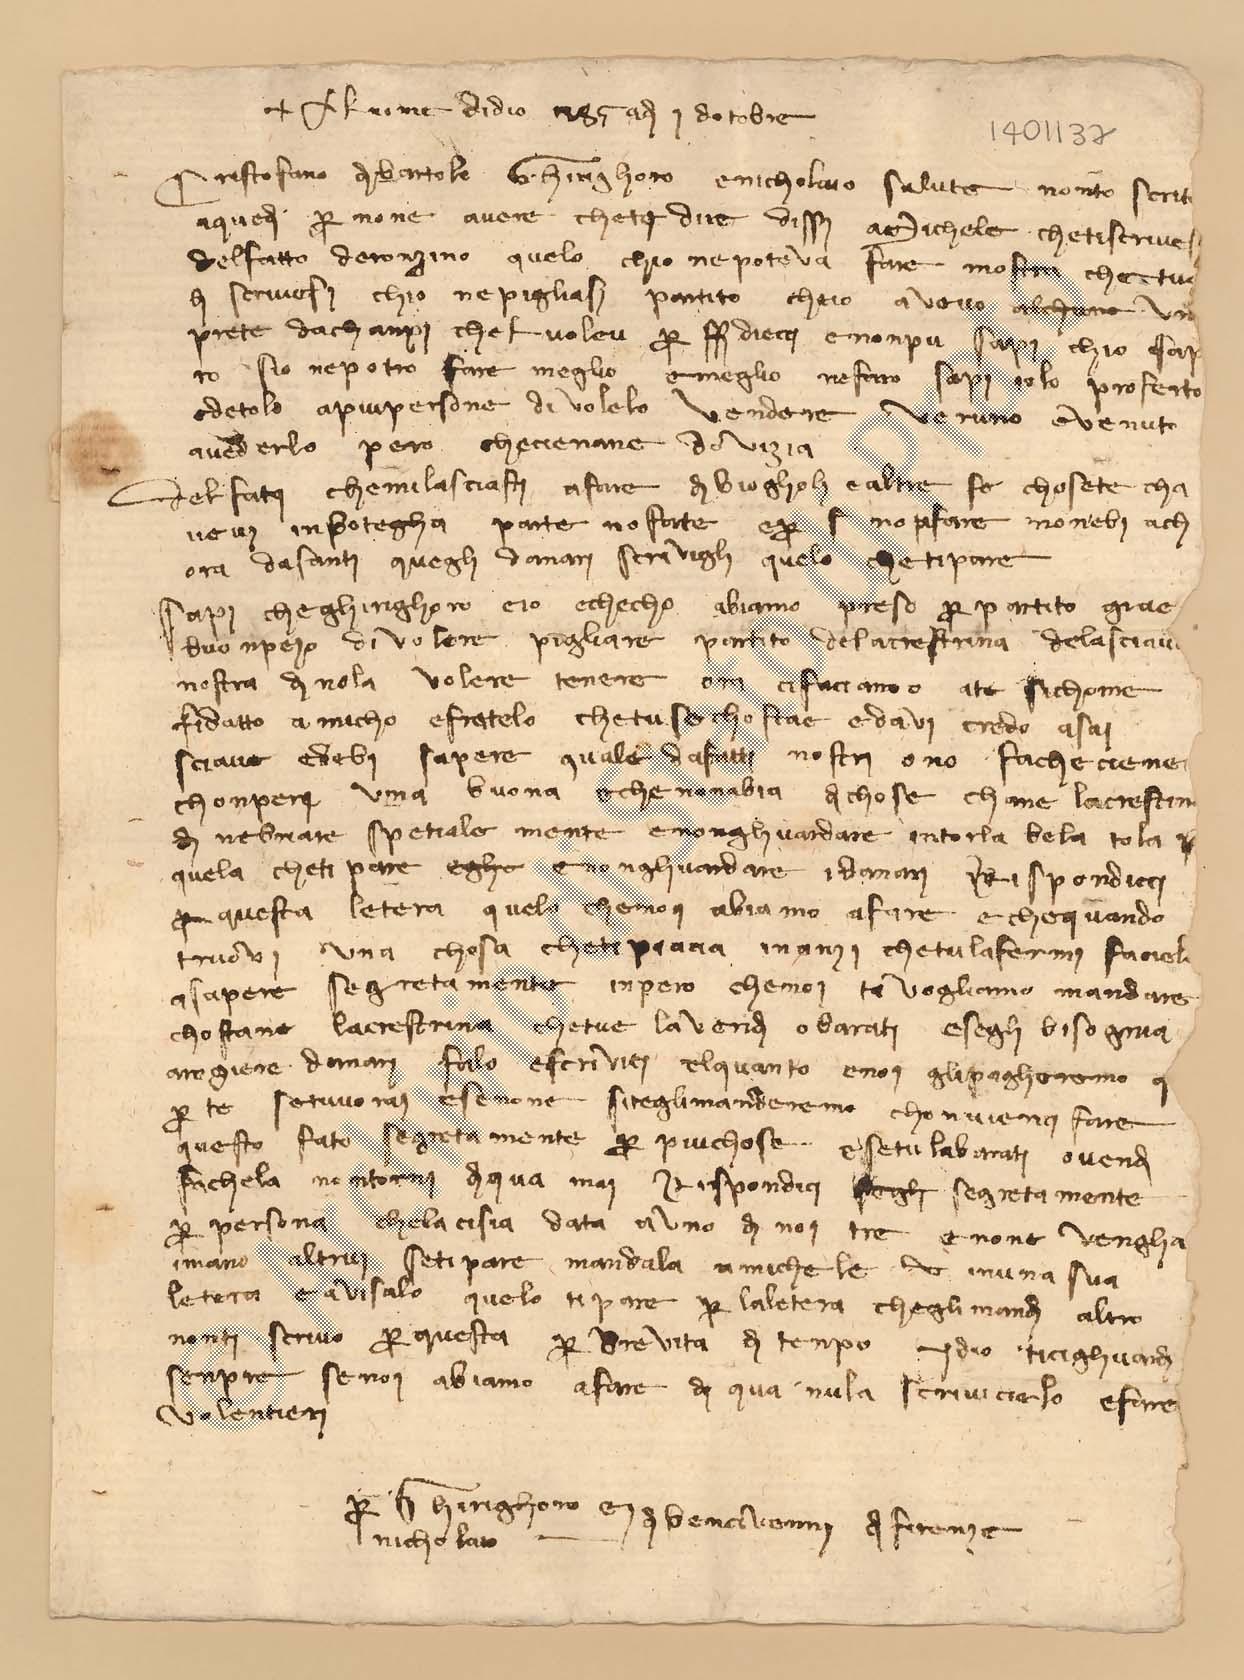 + Al nome didio adi j dotobre
1401137
Cristofano di bartolo Ghirighoro enicholaio salute nonto scrito
aquedi per none avere cheti dire dissi a Michele chetiscrivesi
delfatto deronzino quelo chio nepoteva fare mostra chettu
di scrivesi chio nepigliasi partito cheio avevo alchuno un
prete dachanpi chel voleva per dieci enonpu sapi chio sap
ro sio nepotro fare meglio emeglio nefaro sapi iolo proferto
edetolo apiupersone divolelo vendere veruno evenuto
avederlo pero checienane dovizia
Del fati chemilasciasti afare di bioglioli ealtre chosete cha
vevi inbotegha parte nofate eper nopafare monebi ach
ora dasanti quegli danari scrivigli quelo chetipare
Sapi cheghirighoro eio echecho abiamo preso per partito
buonpezo divolere pigliare partito delacrestina delasciava
nostra di nola volere tenere ora cifacciamo ate sichome
fidatto amicho efratelo chetuse chostae edavi credo asai
sciave edebi sapere quale dafatti nostri ono fachecieme
chonperi una buona echenonabia dichose chome lacrestina
di nebriare spetiale mente enonghuardare intorla bela tola
quela cheti pare eghe enonghuardare idanari Rispondici
per questa letera quelo chenoi abiamo afare echequando
truovi una chosa chetipiacia inanzi chetulafermi facielo
asapere segretamente inpero chenoi ta vogliamo mandare
chostane lacrestina chetue lavendi obarati esegli bisogniva
arogiere danari falo escrivici elquanto enoi glipagheremo q
per te setuvorai esenone siteglimanderemo chonvienci fare
questo fato segretamente per piuchose esetulabarati ovendi
fachela nontorni diqua mai Rispondici segreta mente
per persona chelacisia data auno di noi tre enone vengha
imano altrui setipare mandala amichele inuna sua
letera eavisalo quelo tipare per laletera cheglimandi altro
nonti scrivo perquesta per brevita di tenpo Idio ticighuardi
senpre senoi abiamo afare di qua nula scriviciarlo efare
volentieri
per Ghirighoro e di bencivenni di firenze
nicholaio